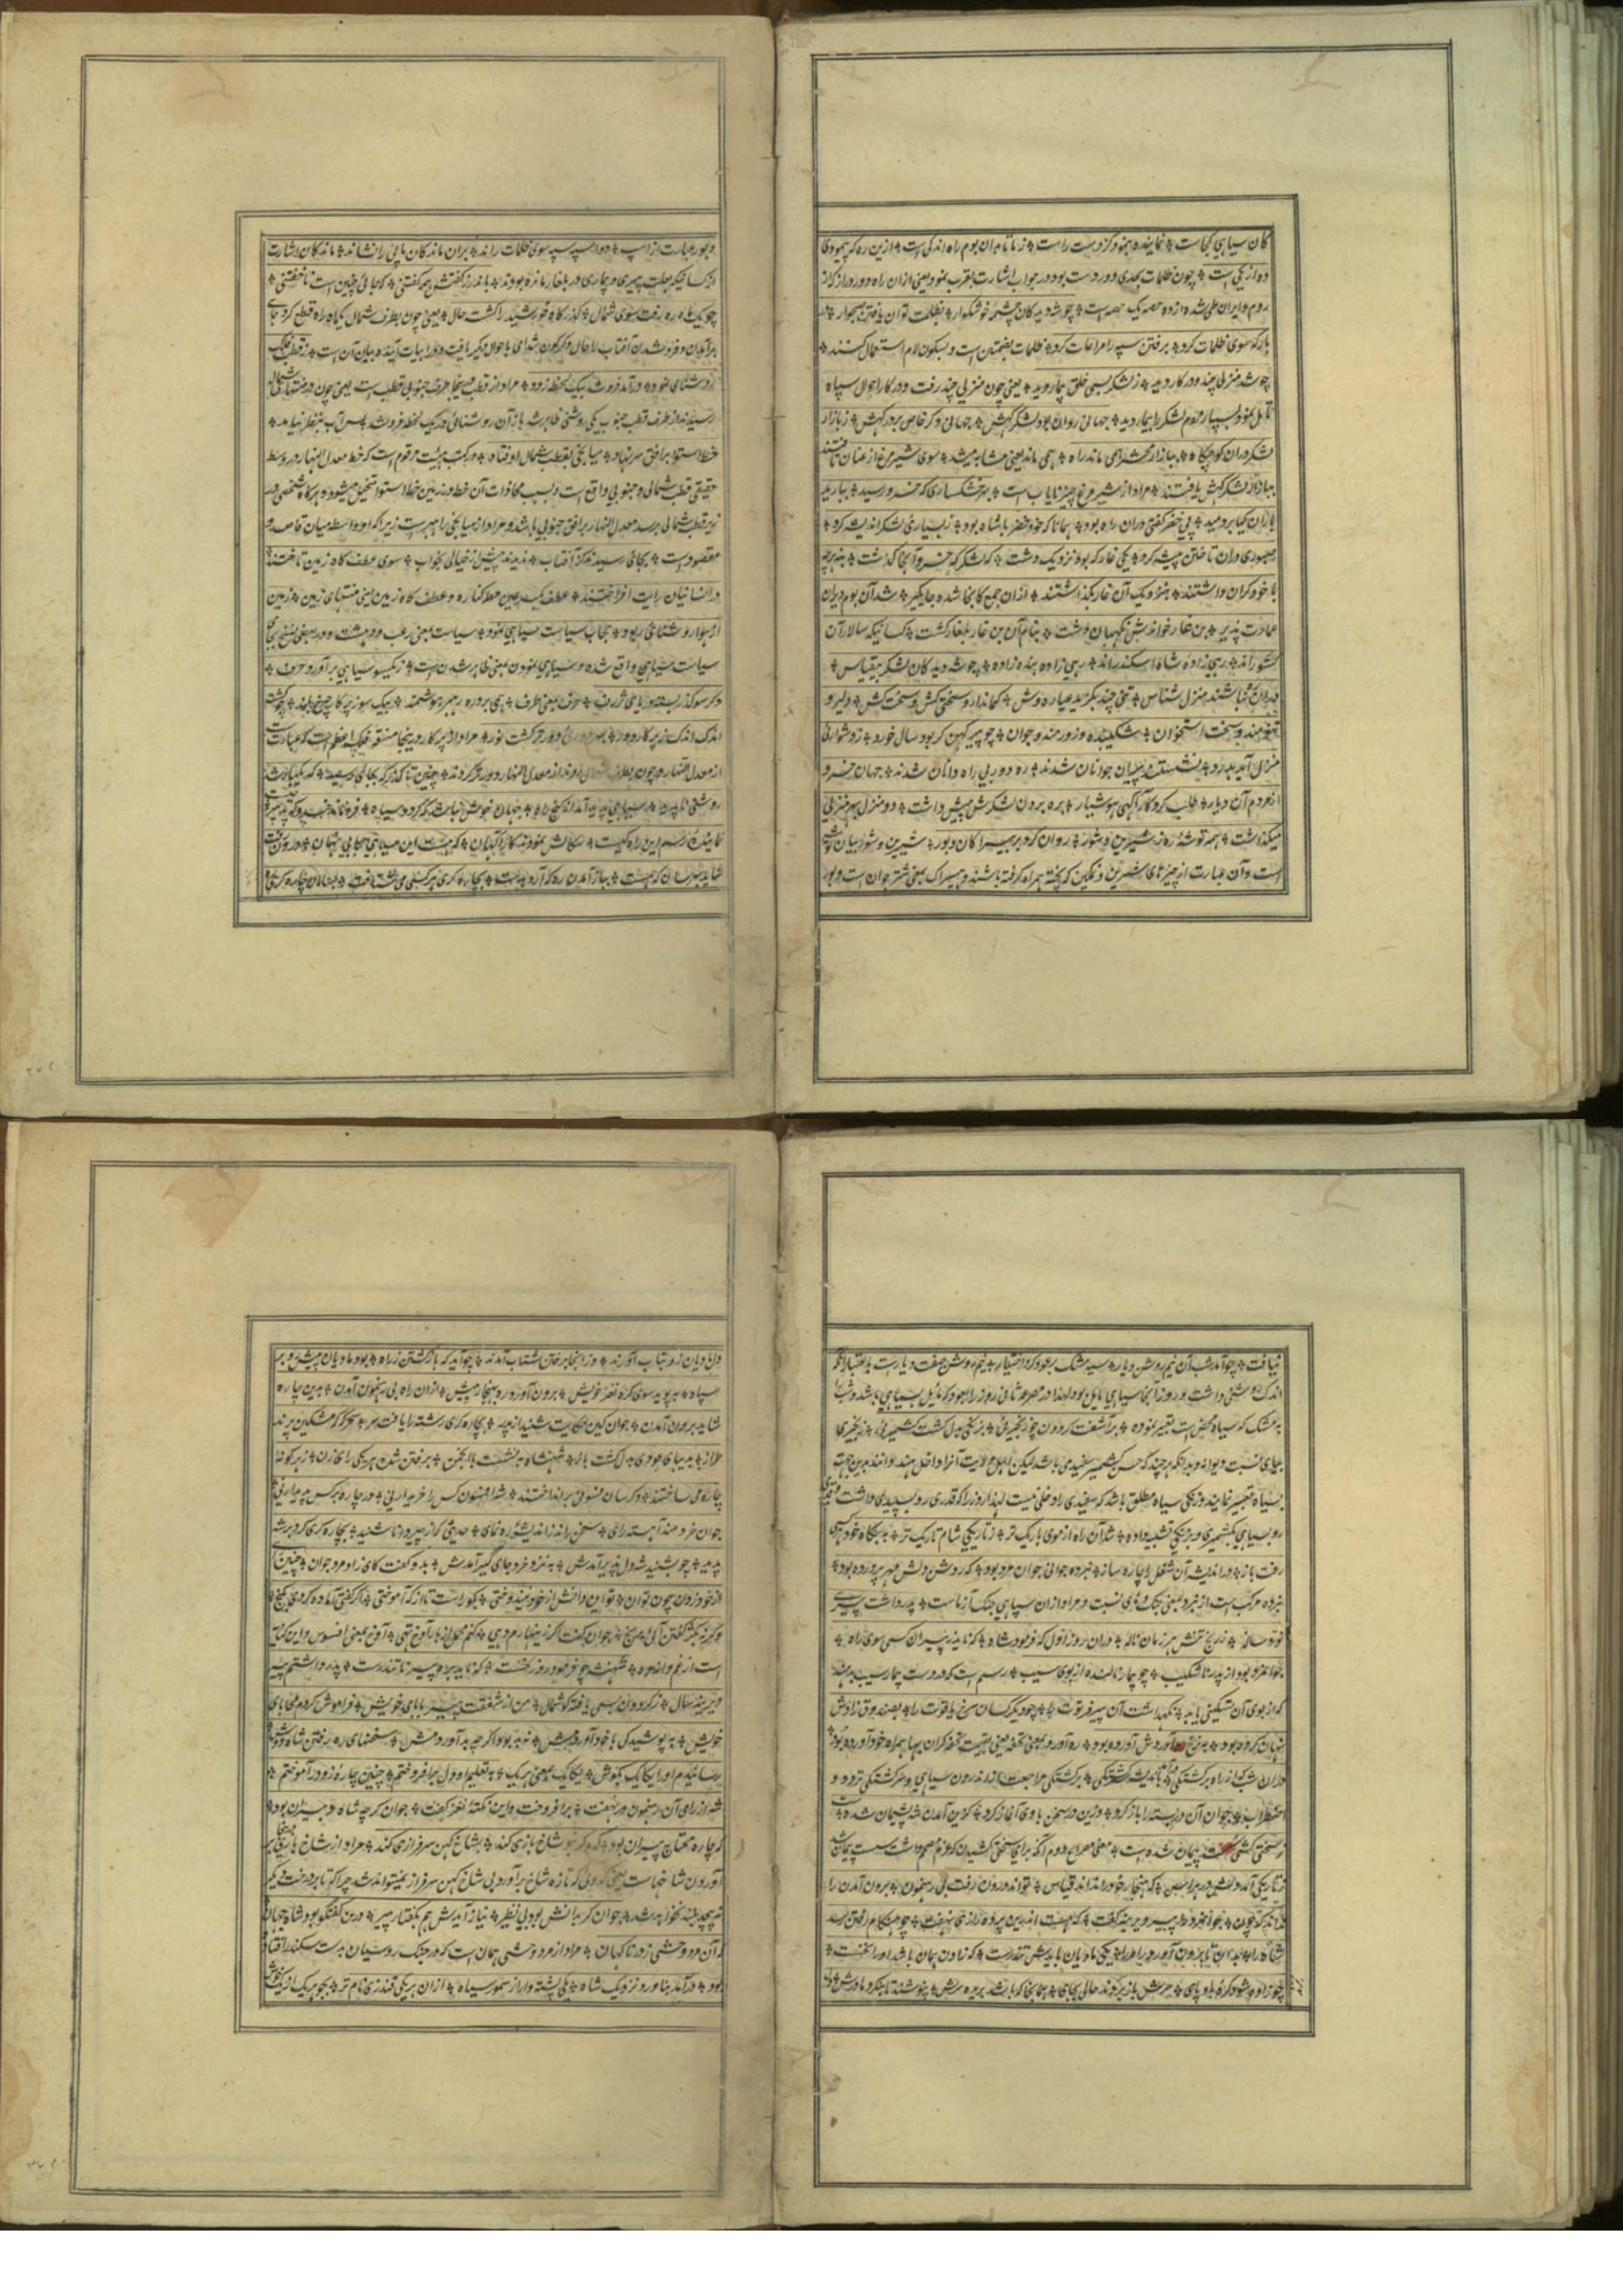 کان سیاهی کجاست * نماینده بنمود کز دست راست * ز ما تا بدان بوم راه اندکی است * ازین ره که پیمودی
ده از یکی است * چون ظلمات بعدی دور دست بود در جواب اشارت بقرب نمود یعنی ازان راه دور دراز که از
روم و ایران طی شده از ده حصه یک حصه است * چو شه دید کان چشمه خوشگوار * بظلمت توان یافتن
بارگه سوی ظلمات کرد * برفتن سپه را مراعات کرد * ظلمات بضمتین است و بسکون لام استعمال کنند *
چو شد منزلی چند و در کار دید * ز لشکر بسی خلق بیمار دید * یعنی چون منزلی چند رفت و در کار احوال سپاه
تامل نمود بسیار مردم لشکر را بیمار دید * جهانی روان بود لشکر گهش * جهانی دگر خاص بر درگهش * ز بازار
لشکر دران کوچگاه * ببازار محشر همی ماند راه * همی ماند یعنی مشابه میشد * سوی شیر مرغ از عنان تافتند
ببازار لشکر گهش یافتند * مراد از شیر مرغ چیز نایاب است * بهر خشکساری که خسرو رسید * ببارید
باران گیا بر دمید * پی خضر گفتی دران راه بود * همانا که خود خضر با شاه بود * ز بسیاری لشکر اندیشه کرد *
صبوری دران تاختن پیشه کرد * یکی غار گه بود نزدیک دشت * که لشکر گه خسرو آنجا گذشت * بنه هرچه
با خود گران داشتند * بنزدیک آن غار بگذاشتند * ازان جمع کانجا شده جایگیر * شد آن بوم ویران
عمارت پذیر * بن غار خواندش نگهبان دشت * بنام آن بن غار بلغار گشت * کسانیکه سالار آن
کشور اند * رهی زاده شاه اسکندر اند * رهی زاده بنده زاده * چو شه دید کان لشکر بیقیاس *
منزل شناس * تنی چند بگزید عیاره وش * کماندار و سختی کش و سخت کش * دلیر و
تنومند و سخت استخوان * شکیبنده و زورمند و جوان * چو پیر کهن گر بود سال خورد * ز دشواری
منزل آید بدرد * نشستند پیران جوانان شدند * ره دور بی راه دانان شدند * جهان خسرو
از مردم آن دیار * طلب کرد کار آگهی هوشیار * بره بردن لشکرش پیش داشت * دو منزل بهر منزلی
میگذاشت * همه توشه ره ز شیرین و شور * روان کرد بر بیسراکان و بور * شیرین و شور بیان توشه
است و آن عبارت از چیزهای شیرین و نمکین که پخته همراه گرفته باشند و بیسراک بمعنی شتر جوان است و بور
و بور عبارت از اسپ * دو اسپه سپه سوی ظلمات راند * بران ماندگان پایی را نشاند * ماندگان اشارت
از کسانیکه بعلت پیری و بیماری در بلغار مانده بودند * باندرز گفتش همه گفتنی * که جای چنین است ناخفتنی *
چو یک ماه ره رفت سوی شمال * گذرگاه خورشید را گشت حال * یعنی چون بطرف شمال یکماه راه قطع کرد جای
برآمدن و فرو شدن آفتاب را حال دگرگون شد
روشنائی نمود * برآمد فرو شد بیک لحظه زود * مراد از قطب اینجا طرف جنوبی قطب است یعنی چون در
رسیدند از طرف قطب جنوب یکی روشنی ظاهر شد باز آن روشنائی در یک لحظه فرو شد پس آب بنظر نیامد *
خط استوا بر افق سر نهاد * میانجی بقطب شمال اوفتاد * در کتب هیئت مرقوم است که خط معدل النهار در وسط
حقیقی قطب شمالی و جنوبی واقع است و بسبب محاذات آن خط در زمین خط استوا تخیل میشود و هرگاه شخصی در
زیر قطب شمالی برسد معدل النهار بر افق جنوبی باشد و مراد از میانجی راهبر است زیراکه او واسطه میان قاصد و
مقصود است * بجائی رسیدند کز آفتاب * ندیدند بیش از خیالی بخواب * سوی عطف گاه زمین تاختند
از هوا روشنائی ربود * حجاب سیاست سیاهی نمود * سیاست بمعنی رعب و دهشت
سیاست سیاهی واقع شده و سیاهی نمودن بمعنی ظاهر شدن است * ز یکسو سیاهی بر آورد حرف *
دگر سو گذر بسته دریای ژرف * حرف بمعنی طرف * همی بر دره رهبر هوشمند * بیک سو ز پرگار چرخ بلند *
اندک اندک ز پرگار دور *
روشنی ناپدید * سیاهی پدید آمد از کنج راه * جهان خوش نباشد که گردد سیاه * فرو ماند خسرو
نماینده رسم این راه کیست * سگالش نمودند کارآگهان * که هست این سیاهی حجابی نهان * درون رفت
شاید بهرسان که هست * بباز آمدن ره که آرد بدست * بچاره گری هر کسی می شتافت *
نیافت * چو آمد شب آن نیم روشن دیار * سیه مشک بر عود کرد اختیار * نیم روشن صفت دیار است باعتبار آنکه
اندک روشنی داشت و روز آنجا سیاهی مایل بود لهذا در مصرعه ثانی روز را بعود که مایل بسیاهی باشد و شب را
به مشک که سیاه محض است تعبیر نموده * بر آشفت گردون چو زنجیریی * بزنگی بدل گشت کشمیریی * زنجیری
بیای نسبت دیوانه و بدانکه هرچند که حسن کشمیر سفیدی باشد لیکن اهل ولایت آنرا داخل هند دانند بدین جهت
بسیاه تعبیر نمایند و زنگی سیاه مطلق باشد که سفیدی را دخلی نیست لهذا روز را که قدری رو بسپیدی داشت
رو بسیاهی بکشمیری و بزنگی تشبیه داده * شد آن راه از موی باریک تر * ز تاریکی شام تاریک تر * به بنگاه خود هر کسی
رفت باز * در اندیشه آن شغل را چاره ساز * نبرده جوانی جوان مرد بود * که روشن دلش مهر پرورده بود *
نبرده مرکب است از نبرد بمعنی جنگ و های نسبت و مراد ازان سپاهی جنگ آزماست * پدر داشت پیری
نود ساله * ز رنج تنش هر زمان ناله * دران روز اول که فرمود شاه * که ناید ز پیران کسی سوی راه *
جوانمرد بود از پدر ناشکیب * چو بیمار نالنده از بوی سیب * رسم است که در دست بیمار سیب بدهند
که از بوی آن تسکینی یابد * نگهداشت آن پیر فرتوت را * چو دیگر کسان سرخ یاقوت را * بصندوق زادش
نهان کرده بود * به نیرنگ آورده بود * ره آورد بمعنی تحفه یعنی بقیمت تحفه گران بها همراه خود آورده بود *
جوان آن در بسته را باز کرد * وزین در سخن با وی آغاز کرد * کزین آمدن شه پشیمان شده است
ز تاریکی آمد دلش در هراس * که هنجار خود را نداند قیاس * تواند درون رفت بی رهنمون * برون آمدن را
نداند که چون * جوانمرد را پیر دیرینه گفت * که هست اندرین پرده رازی نهفت * چو هنگام رفتن رسد
شاه را * بدان تا برون آورد راه را * یکی مادیان بایدش تندرست * که زادن همان باشد او را نخست *
چو زاده شود کره باد پای * سرش باز برند حالی بجای * همانجا که باشد بریده سرش * نپوشند تا بنگرد مادرش *
دل مادیان زو بتاب آورند * وز آنجا برفتن شتاب آورند * چو آید که بازگشتن ز راه * بود مادیان پیش
سپاه * به پوید سوی کره نغز خویش * برون آورد ره بهنجار پیش * ازان راه بی رهنمون آمدن * بدین چاره
شاید برون آمدن * جوان کین حکایت شنید از پدر * بچاره گری رشته را یافت سر * سحرگه که مشکین پرند
طراز * بدیبای عودی بدل گشت باز * شهنشاه بنشست با انجمن * برفتن شده هر یکی رای زن * ز هر گونه
چاره می ساختند * دگرسان فسونی بر انداختند * نشد رهنمون کس را خریداریی * در چاره بر کس پدیداریی *
جوان خردمند آهسته رای * سخن راند ز اندیشه ره نمای * حدیثی که از پیر دانا شنید * بچاره گری کرد بر شه
پدید * چو بشنید شه دلپذیر آمدش * به نزد خرد جای گیر آمدش * بدو گفت کای زاد مرد جوان * چنین
از خود زدن چون توان * تو این دانش از خود نیندوختی * بگو راست تا از که آموختی * اگر گفتی آباده گردی بگنج
وگرنه ز کژ گفتن آئی برنج * جوان گفت اگر زینهارم دهی * کنم محمل از بار آوخ تهی * آوخ بمعنی افسوس و این کنایه
است از غم و اندوه * شهنشه چو فرمود روز نخست * که ناید بره پیر نا تندرست * پدر داشتم پیر
دیرینه سال * ز گردون بسی یافته گوشمال * من از شفقت پیر بابای خویش * فراموش کردم محابای
خویش * به پوشیدگی با خود آوردمش * نه بد بود اگر چه بد آوردمش * سخنهای ره رفتن شاه دوش
رسانیدم او را یکایک بگوش * یکایک بمعنی هر یک * به تعلیم او دل بر افروختم * چنین چاره زو در آموختم *
شه از رای آن رهنمون در نهفت * بر افروخت و این نکته نغز گفت * جوان گرچه شاه دلیران بود *
گه چاره محتاج پیران بود * کدو گر بنو شاخ بازی کند * بشاخ کهن سرفرازی کند * مراد از شاخ بازی
آوردن شاخهاست یعنی کدوئی که تازه شاخ بر آورد بی شاخ کهن سرفراز نمیتواند شد چراکه تا بر درخت دیگر
نه پیچد بلند نخواهد شد * جوان گر بدانش بود بی نظیر * نیاز آیدش هم بگفتار پیر * درین گفتگو بود شاه جهان
که آن مرد وحشی ز در ناگهان * مراد از مرد وحشی همان است که در جنگ روسیان بدست سکندر افتاده
بود * در آمد بناورد نزدیک شاه * یکی پشته وار از سمور سیاه * ازان هر یکی قندزی نام تر *